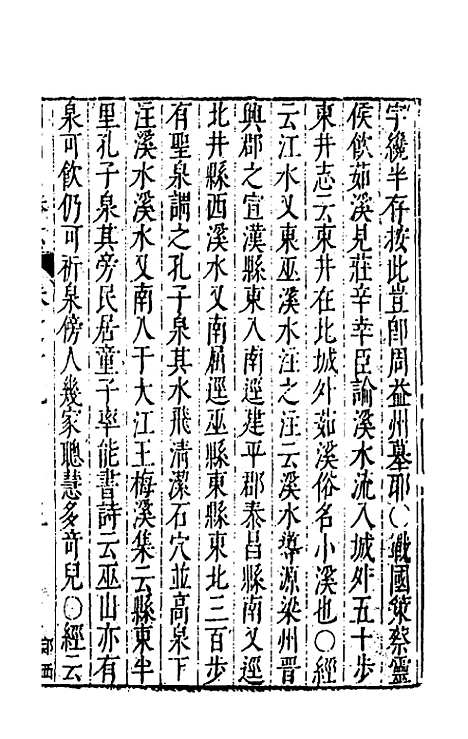 字纔半存按此豈卽周益州墓耶○戰國策蔡靈
侯飲茹溪見莊辛幸臣論溪水流入城外五十步
東井志云東井在北城外茹溪俗名小溪也○經
云江水又東巫溪水注之注云溪水導源梁州晉
興郡之宣漢縣東入南逕建平郡泰昌縣南又逕
北井縣西溪水又南屆逕巫縣東縣東北三百步
有聖泉謂之孔子泉其水飛清潔石穴並高泉下
注溪水溪水又南入于大江王梅溪集云縣東半
里孔子泉其旁民居童子率能書詩云巫山亦有
泉可飲仍可祈泉傍人幾家聰慧多奇兒○經云